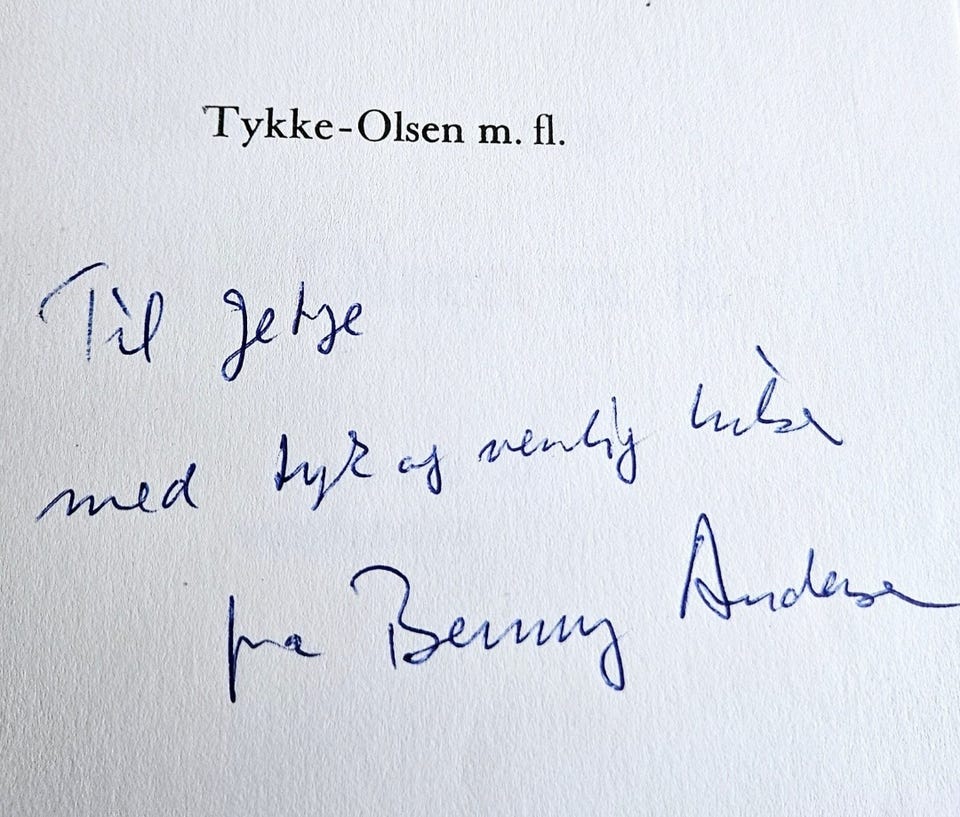 Tykke-Olsen m. fl.
Til
med tyk og venlig hilsen
fra Benny Andersen